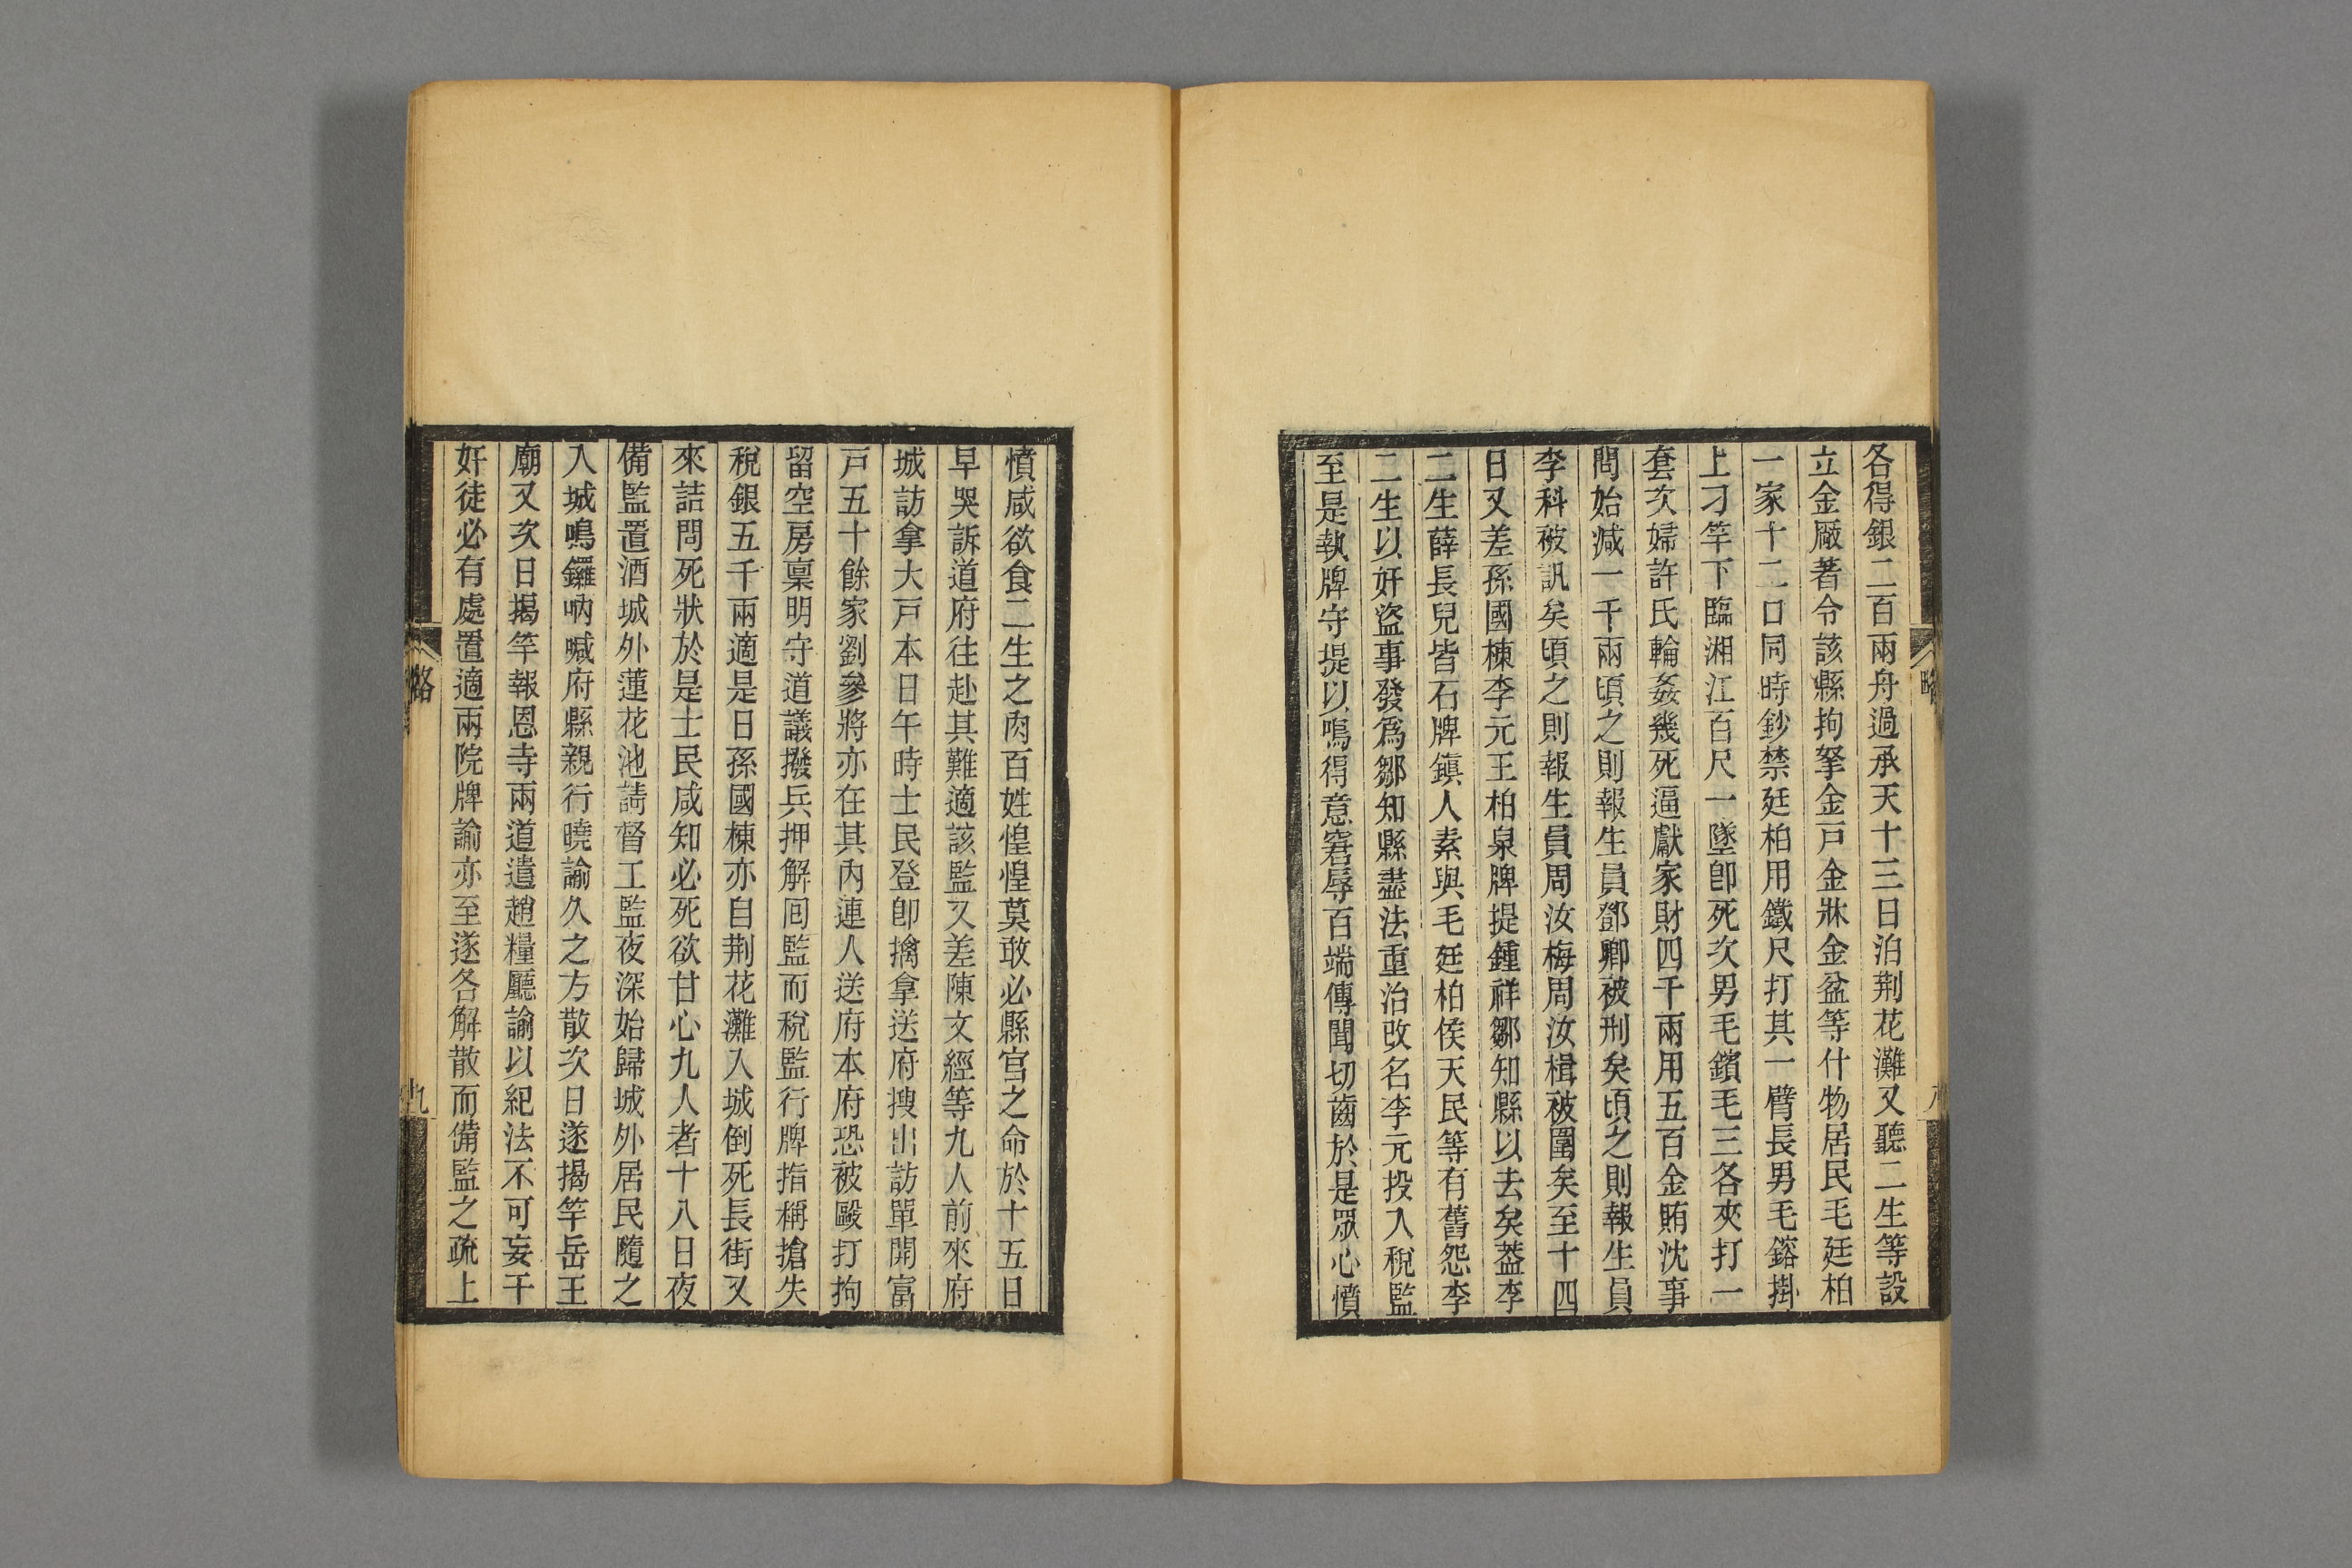 各得銀二百兩舟過承天十三日泊荆花灘又聽二生等設
立金厰著令該縣拘拏金戸金牀金盆等什物居民毛廷柏
一家十二口同時鈔禁廷柏用鐵尺打其一臂長男毛鎔掛
上刁竿下臨湘江百尺一墜卽死次男毛鑌毛三各夾打一
套次婦許氏輪姦幾死逼獻家財四千兩用五百金賄沈事
問始減一千兩頃之則報生員鄧卿被刑矣頃之則報生員
李科被訊矣頃之則報生員周汝梅周汝楫被圍矣至十四
日又差孫國棟李元王柏泉牌提鍾祥鄒知縣以去矣葢李
二生薛長兒皆石牌鎮人素與毛廷柏侯天民等有舊怨李
二生以奸盜事發爲鄒知縣盡法重治改名李元投入稅監
至是執牌守提以鳴得意窘辱百端傳聞切齒於是眾心憤
憤咸欲食二生之肉百姓惶惶莫敢必縣官之命於十五日
早哭訴道府往赴其難適該監又差陳文經等九人前來府
城訪拿大戸本日午時士民登卽擒拿送府搜出訪單開富
戸五十餘家劉參將亦在其內連人送府本府恐被毆打拘
留空房稟明守道議撥兵押解囘監而稅監行牌指稱搶失
稅銀五千兩適是日孫國棟亦自荆花灘入城倒死長街又
來詰問死狀於是士民咸知必死欲甘心九人者十八日夜
備監置酒城外蓮花池請督工監夜深始歸城外居民隨之
入城鳴鑼吶喊府縣親行曉諭久之方散次日遂揭竿岳王
廟又次日揭竿報恩寺兩道遣趙糧廳諭以紀法不可妄干
奸徒必有處置適兩院牌諭亦至遂各解散而備監之疏上
略
九
略
八